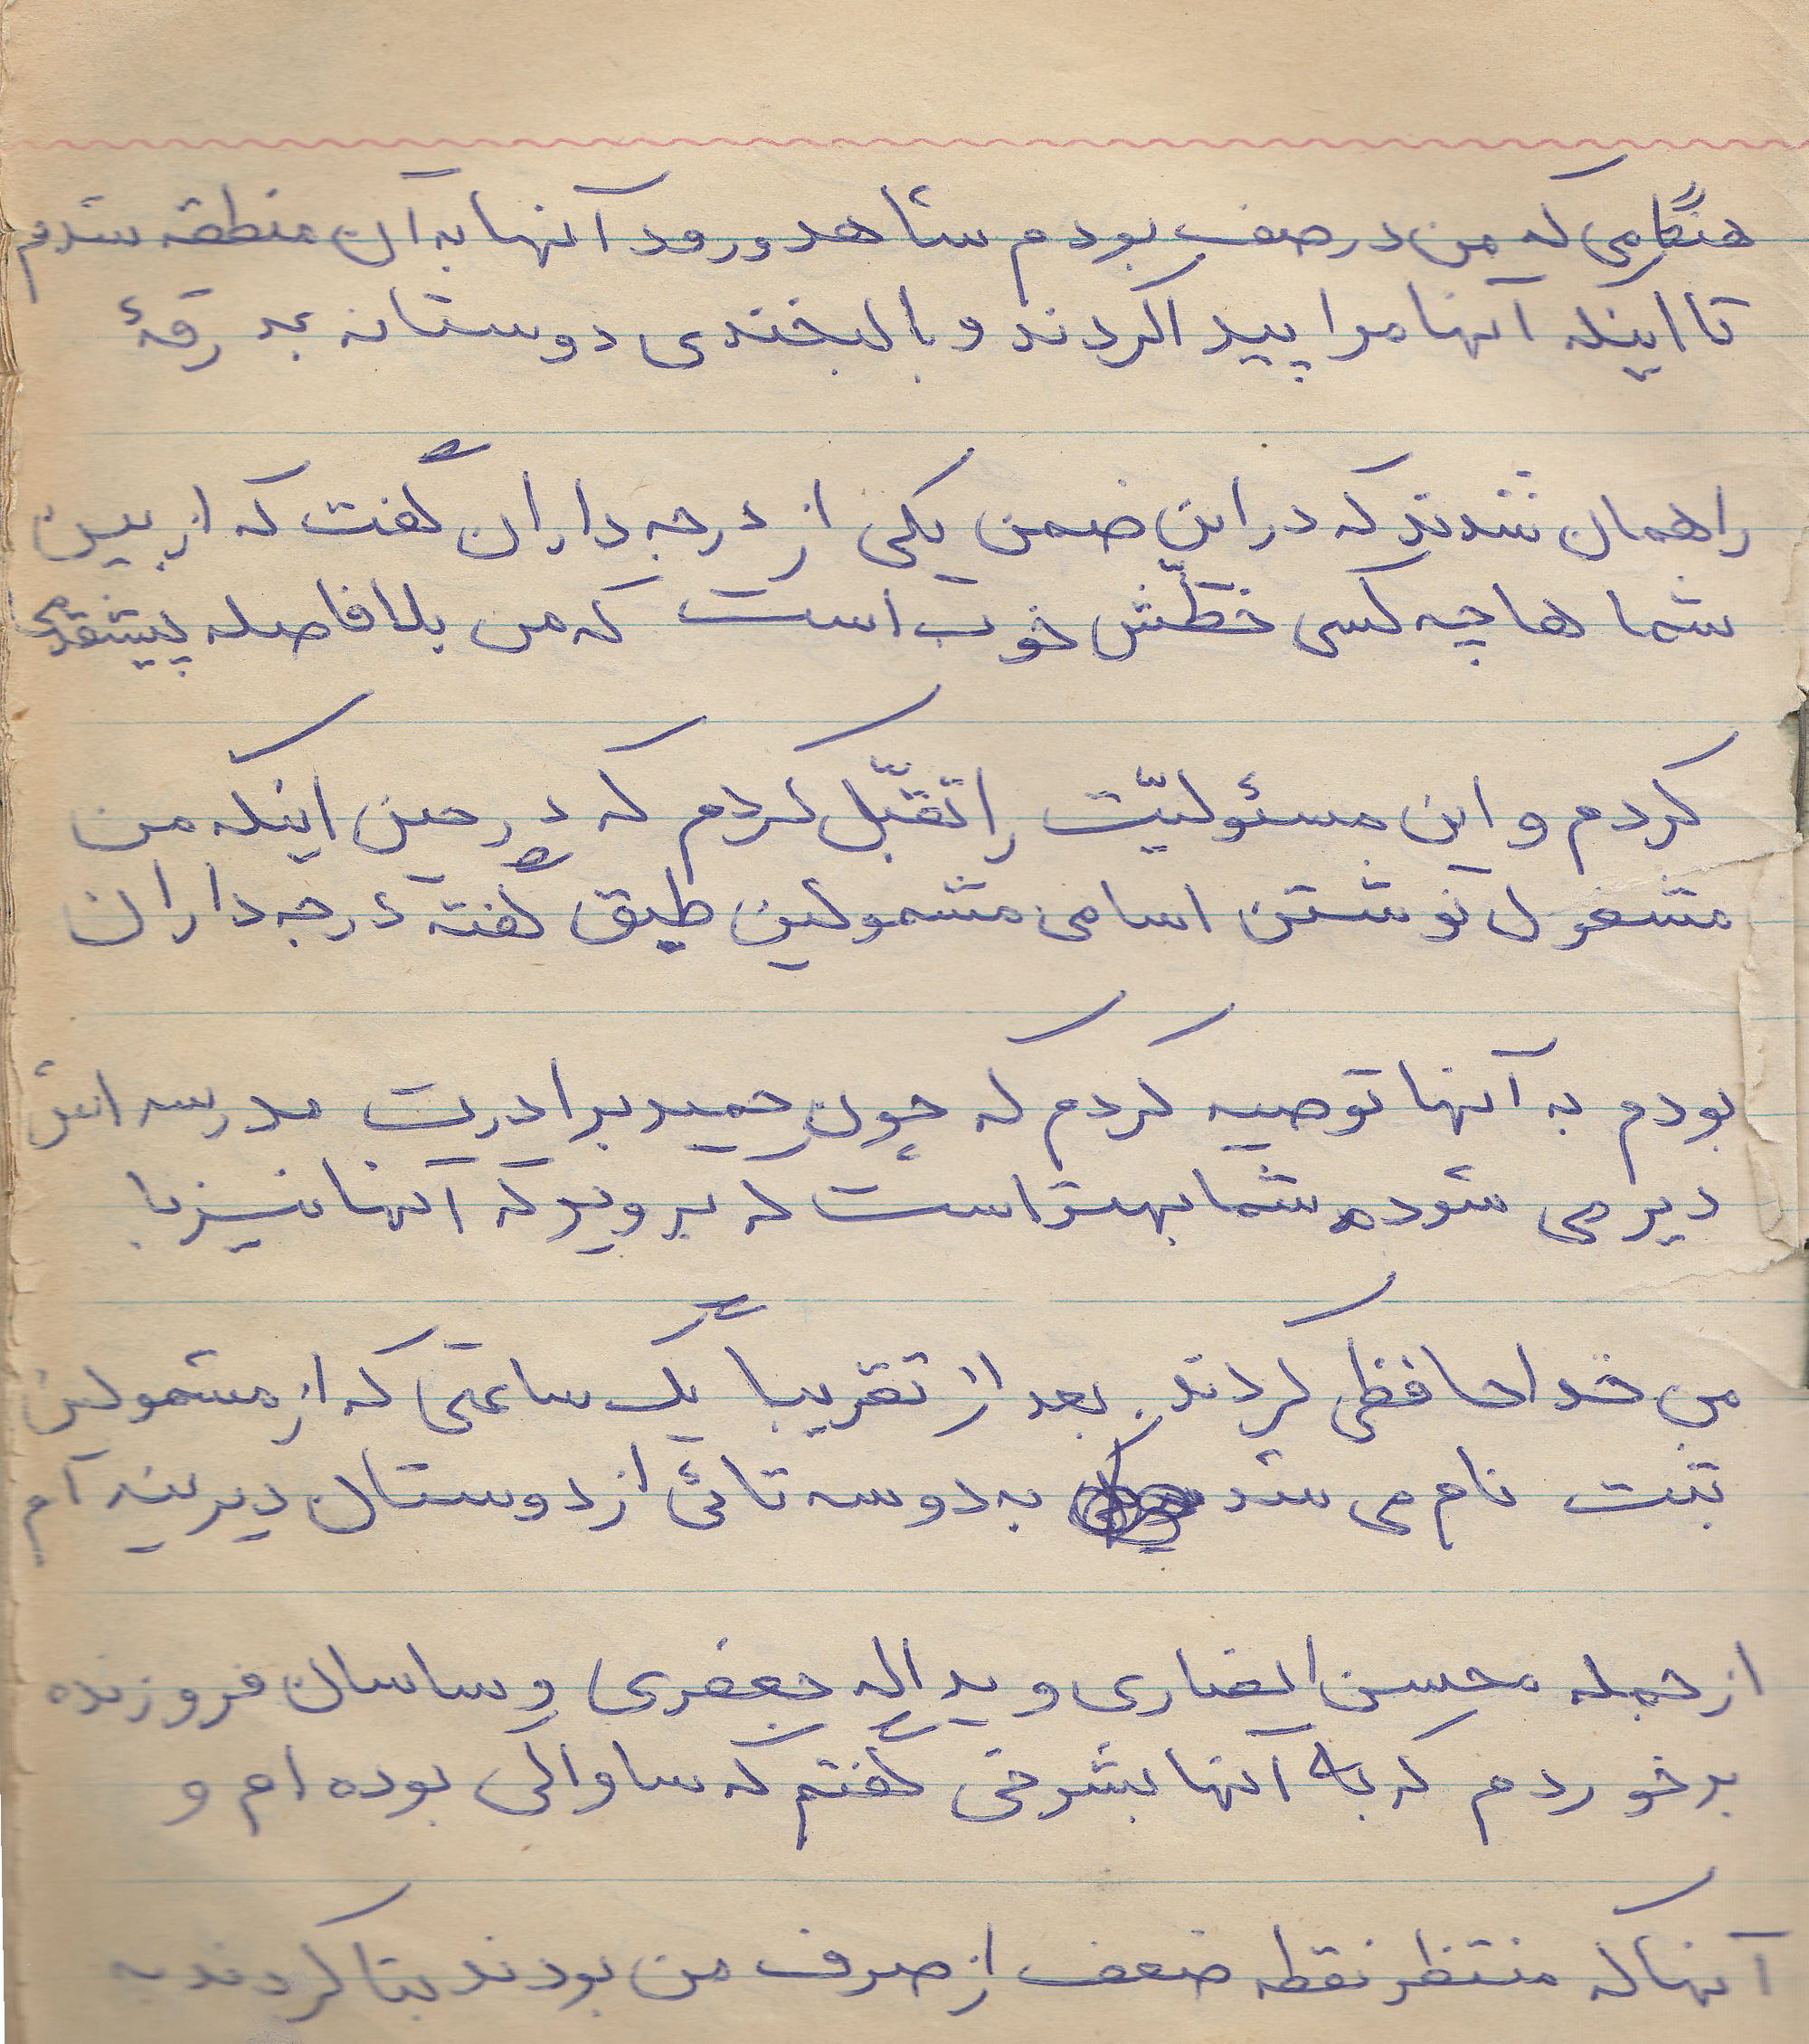 هنگامی که من در صف بودم شاهد ورود آنها به آن منطقه شدم
تا اینکه آنها مرا پیدا کردند و با لبخندی دوستانه بدرقهٔ
راهمان شدند که در این ضمن یکی از درجه داران گفت که از بین
شما ها چه کسی خطّش خوب است که من بلافاصله پیشقدمی
کردم و این مسئولیّت را تقبّل کردم که در حین اینکه من
مشغول نوشتن اسامی مشمولین طبق گفته درجه داران
بودم به آنها توصیه کردم که چون حمید برادرت مدرسه اش
دیر می شود شما بهتر است که بروید که آنها نیز با
من خداحافظی کردند. بعد از تقریباً یک ساعتی که از مشمولین
ثبت نام می شد به دو سه تائی از دوستان دیرینه ام
از جمله محسن انصاری و یداله جعفری و ساسان فروزنده
برخوردم که به آنها بشوخی گفتم که ساواکی بوده ام و
آنها که منتظر نقطه ضعف از صرف من بودند بنا کردند به